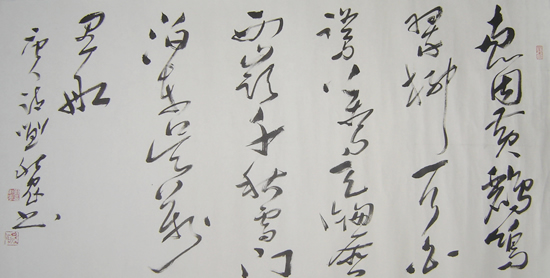 兩個黃鸝鳴
翠柳一行白
鷺上青天窗含
西嶺千秋雪門
泊東吳萬
里船
唐詩